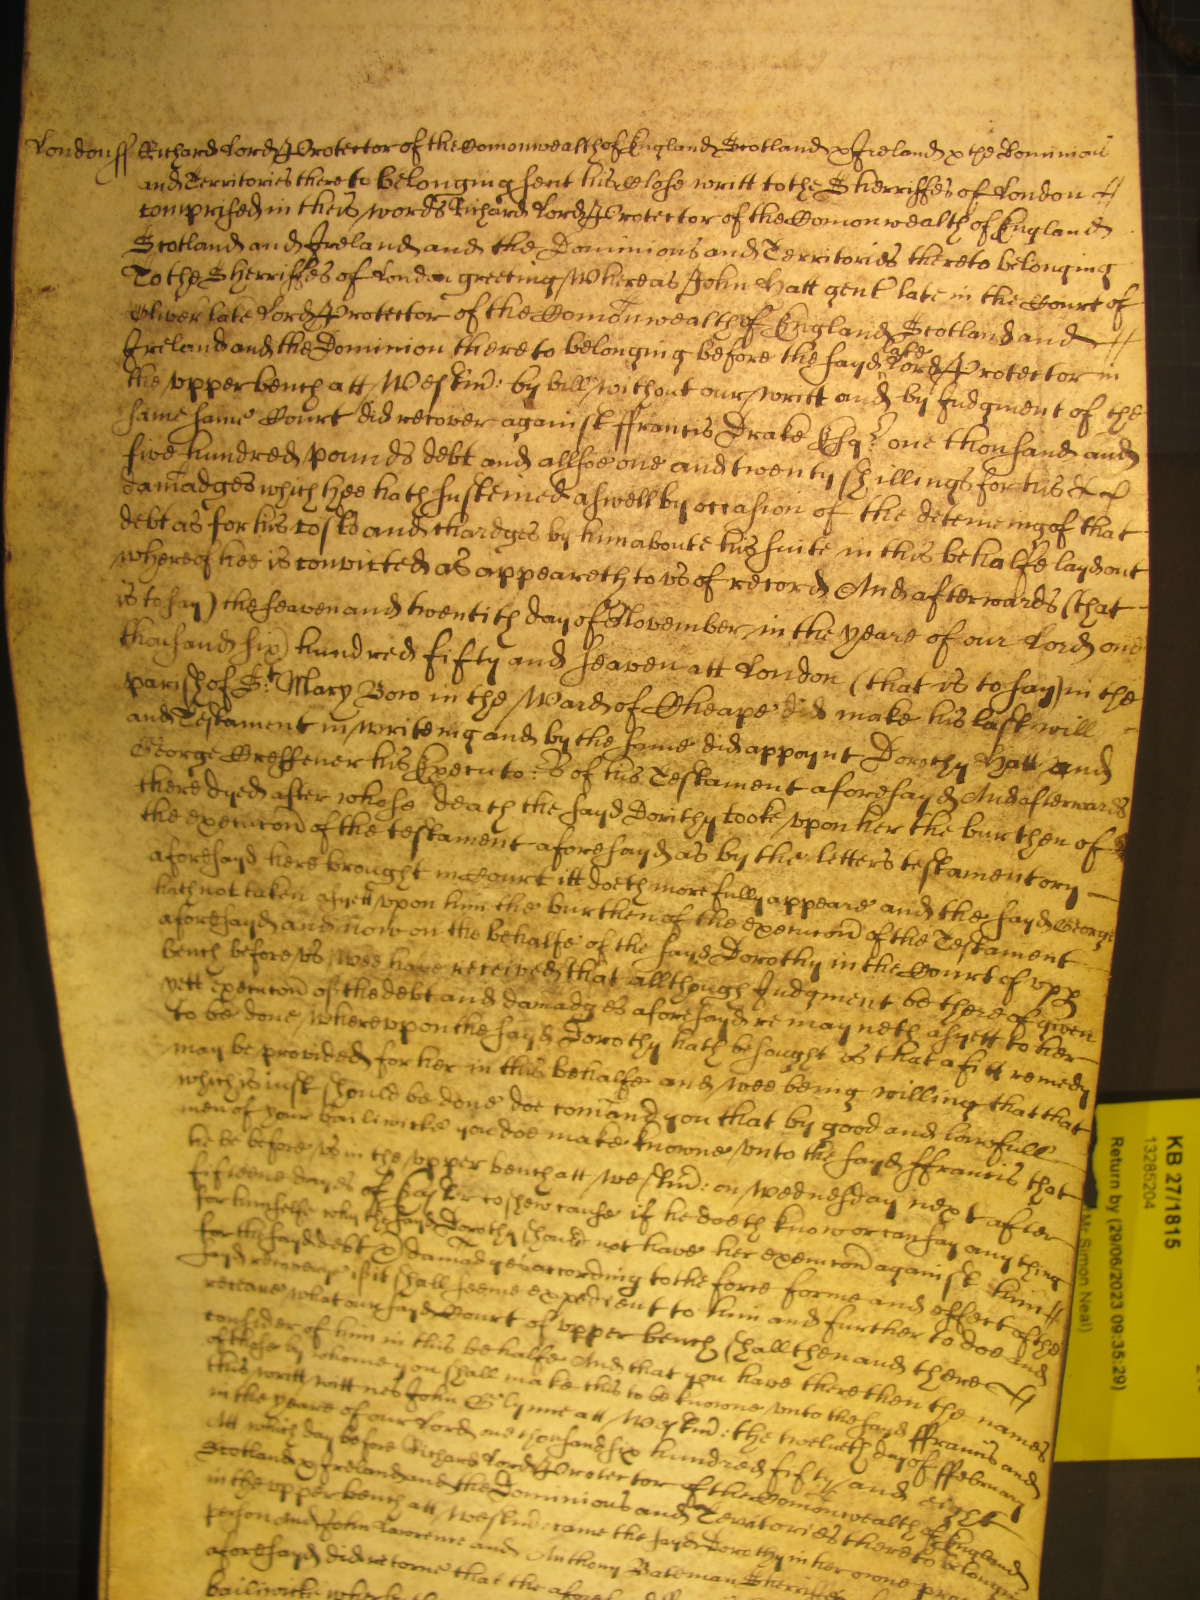 London ss Richard Lord Protector of the Comonwealth of England Scotland & Ireland & the Dominions
and Territories thereto belonging sent his Close writt to the Sherriffes of London
comprised in theis words Richard Lord Protector of the Comonwealth of England
Scotland and Ireland and the Dominions and Territories thereto belonging
To the Sherriffes of London greeting Whereas John Hatt gent late in the Court of
Oliver late Lord Protector of the Comonwealth of England Scotland and
Ireland and the Dominion thereto belonging before the sayd late Lord Protector in
the upper bench att Westmr: by bill without our writt and by Judgment of the
same same Court did recover against ffrancis Drake Esqr: one thousand and
five hundred pounds debt and allsoe one and twenty shillings for his
damadges which hee hath susteined aswell by occasion of the deteineing of that
debt as for his costs and chardges by him aboute his suite in this behalfe layd out
whereof hee is convicted as appeareth to us of record And afterwards (that
is to say) the seaven and twentith day of November in the yeare of our Lord one
thousand six hundred fifty and seaven att London (that is to say) in the
parish of St. Mary Bow in the Ward of Cheape did make his last will
and Testament in writeing and by the same did appoynt Dorothy Hatt and
George his Executo:rs of his Testament aforesayd And afterwards
there dyed after whose death the sayd Dorithy tooke upon her the burthen of
the execucon of the testament aforesayd as by the letters testamentory
aforesayd here brought in Court itt doeth more fully appeare and the sayd George
hath not taken as yett upon him the burthen of the execucon of the Testament
aforesayd and now on the behalfe of the sayd Dorothy in the Court of upp
bench before us wee have received that allthough Judgment be thereof given
yett execucon of the debt and damadges aforesayd remayneth as yett to her
to be done whereupon the sayd Dorothy hath besought us that a fitt remedy
may be provided for her in this behalfe and wee being willing that that
which is just should be done doe comand you that by good and lawfull
men of your bailiwicke you doe make knowne unto the sayd ffrancis that
he be before us in the upper bench att Westmr: on Wednesday next after
fifteene dayes of Easter to shew cause if he doeth know or can say any thing
for himselfe why the sayd Dorothy should not have her execucon against him
for the sayd debt & damadges according to the force forme and effect of the
sayd recovery if it shall seeme expedient to him and further to doe and
receave what our sayd Court of upper bench shall then and there
consider of him in this behalfe And that you have there then the names
of those by whome you shall make this to be knowne unto the sayd ffrancis and
this writt wittnes John Glynne att Westmr: the twelveth day of ffebruary
in the yeare of our Lord one thousand six hundred fifty and eight
Att which day before Richard Lord Protector of the Comonwealth of England
Scotland & Ireland and the Dominions and Territories thereto belonging
in the upper bench att Westmr: came the sayd Dorothy in her owne proper
person And John Lawrence and Anthony Bateman Sherriffes
aforesayd did retorne that the
bailiwicke
KB 27/1815
13285204
Return by (29/06/2023 09:35:29)
Mr Simon Neal)